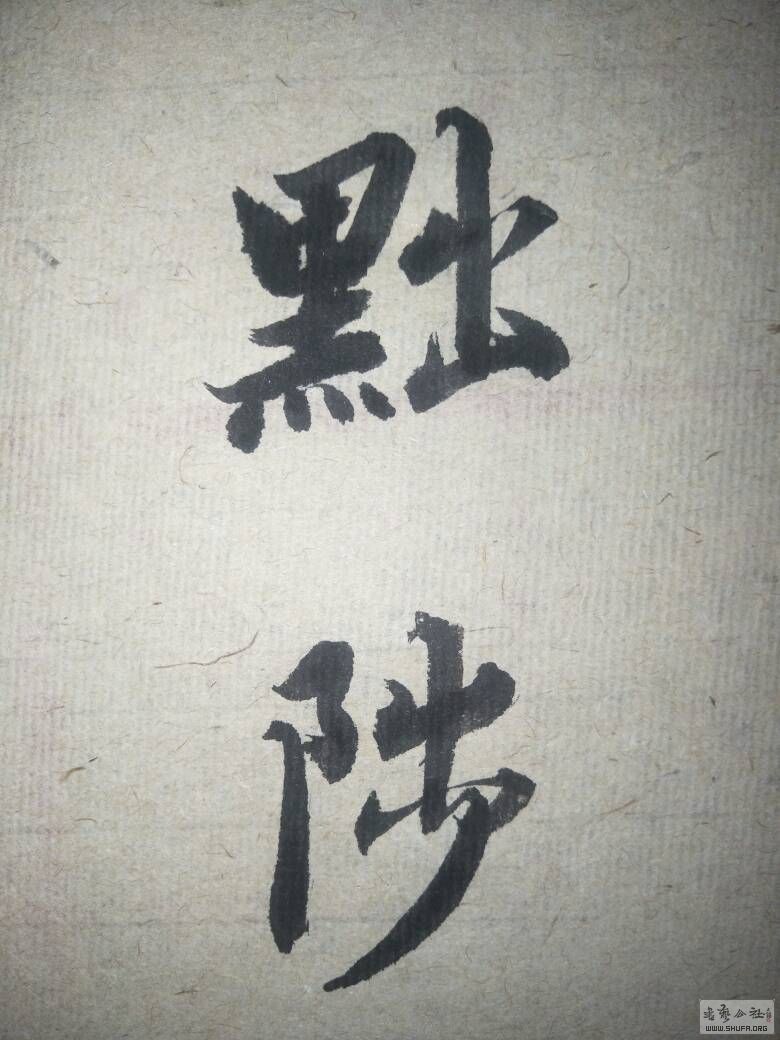 黜
陟
书艺公社
WWW.SHUFA.ORG